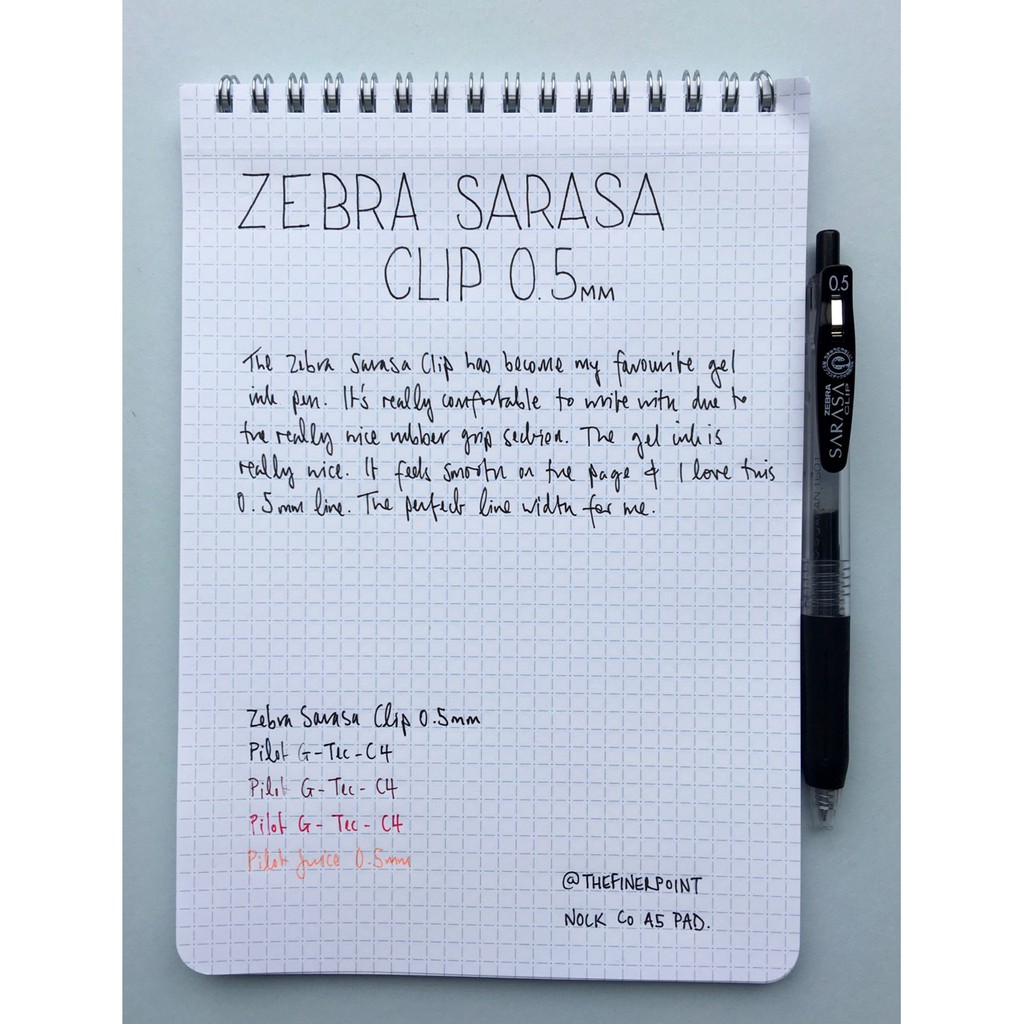 ZEBRA SARASA
CLIP 0.5MM
The Zebra Sarasa Clip has become my favourite gel
ink pen. It's really comfortable to write with due to
the really nice rubber grip section. The gel ink is
really nice. It feels smooth on the page & I love this
0.5mm line. The perfect line width for me.
Zebra Sarasa Clip 0.5mm
Pilot G-Tec-C4
Pilot G-Tec-C4
Pilot G-Tec-C4
Pilot Juice 0.5mm
@THEFINERPOINT
NOCK CO A5 PAD.
0.5
ZEBRA
SARASA
CLIP